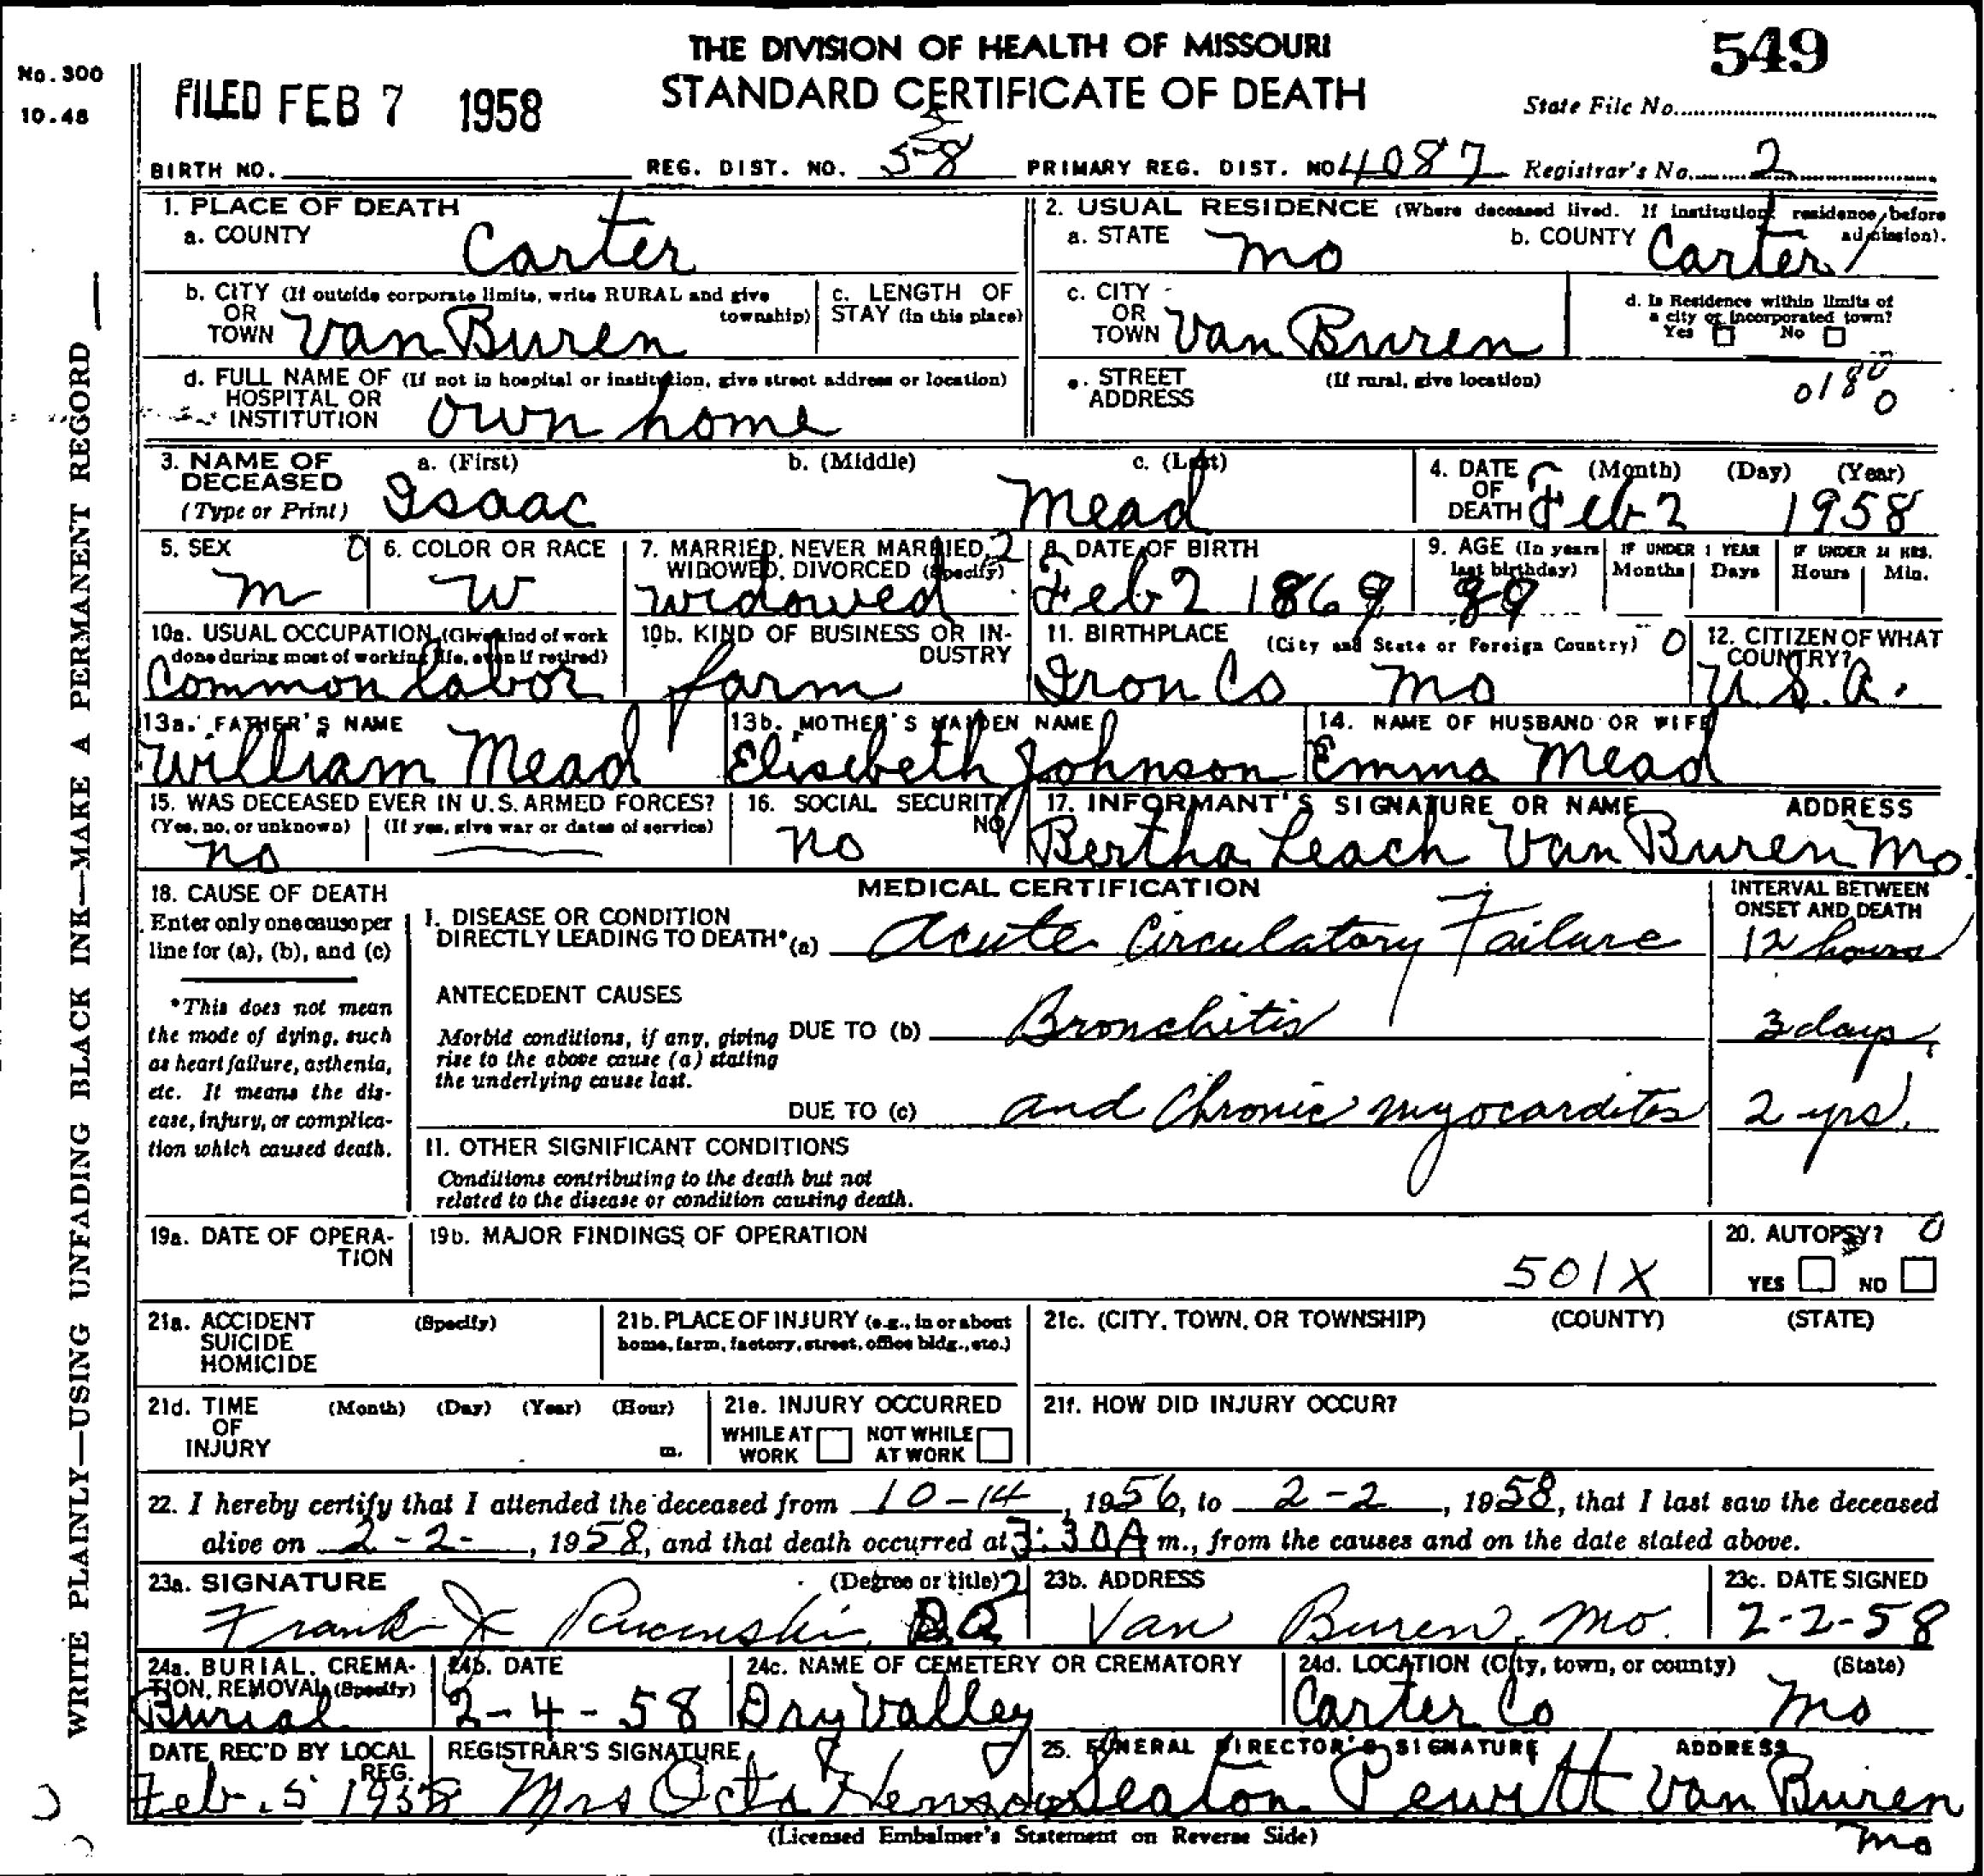 THE DIVISION OF HEALTH OF MISSOURI
STANDARD CERTIFICATE OF DEATH
549
No. 300
10.48
FILED FEB 7 1958
State File No.
BIRTH NO. REG. DIST. NO. 58 PRIMARY REG. DIST. NO 4087 Registrar's No. 2
WRITE PLAINLY—USING UNFADING BLACK INK—MAKE A PERMANENT RECORD
1. PLACE OF DEATH
a. COUNTY Carter
2. USUAL RESIDENCE (Where deceased lived. If institution: residence before admission).
a. STATE Mo b. COUNTY Carter
b. CITY (If outside corporate limits, write RURAL and give township) OR TOWN Van Buren
c. LENGTH OF STAY (in this place)
c. CITY OR TOWN Van Buren
d. Is Residence within limits of a city or incorporated town? Yes No
d. FULL NAME OF (If not in hospital or institution, give street address or location) HOSPITAL OR INSTITUTION own home
e. STREET ADDRESS (If rural, give location)
0180
0
3. NAME OF DECEASED (Type or Print)
a. (First) b. (Middle) c. (Last)
Isaac Mead
4. DATE OF DEATH (Month) (Day) (Year)
Feb 2 1958
5. SEX 0
m
6. COLOR OR RACE
W
7. MARRIED, NEVER MARRIED, WIDOWED, DIVORCED (Specify) 2
widowed
8. DATE OF BIRTH
Feb 2 1869
9. AGE (In years last birthday)
89
IF UNDER 1 YEAR Months Days
IF UNDER 24 HRS. Hours Min.
10a. USUAL OCCUPATION (Give kind of work done during most of working life, even if retired)
Common labor
10b. KIND OF BUSINESS OR INDUSTRY
farm
11. BIRTHPLACE (City and State or Foreign Country) 0
Iron Co Mo
12. CITIZEN OF WHAT COUNTRY?
U.S.A.
13a. FATHER'S NAME
William Mead
13b. MOTHER'S MAIDEN NAME
Elisebeth Johnson
14. NAME OF HUSBAND OR WIFE
Emma Mead
15. WAS DECEASED EVER IN U.S. ARMED FORCES?
(Yes, no, or unknown) (If yes, give war or dates of service)
no
16. SOCIAL SECURITY NO.
no
17. INFORMANT'S SIGNATURE OR NAME ADDRESS
Bertha Leach Van Buren Mo.
18. CAUSE OF DEATH
Enter only one cause per line for (a), (b), and (c)
*This does not mean the mode of dying, such as heart failure, asthenia, etc. It means the disease, injury, or complication which caused death.
MEDICAL CERTIFICATION
INTERVAL BETWEEN ONSET AND DEATH
I. DISEASE OR CONDITION DIRECTLY LEADING TO DEATH* (a) Acute Circulatory Failure 12 hours
ANTECEDENT CAUSES
Morbid conditions, if any, giving rise to the above cause (a) stating the underlying cause last.
DUE TO (b) Bronchitis 3 days
DUE TO (c) and Chronic myocardites 2 yrs.
II. OTHER SIGNIFICANT CONDITIONS
Conditions contributing to the death but not related to the disease or condition causing death.
19a. DATE OF OPERATION
19b. MAJOR FINDINGS OF OPERATION
501X
20. AUTOPSY? 0
YES NO
21a. ACCIDENT SUICIDE HOMICIDE (Specify)
21b. PLACE OF INJURY (e.g., in or about home, farm, factory, street, office bldg., etc.)
21c. (CITY, TOWN, OR TOWNSHIP) (COUNTY) (STATE)
21d. TIME OF INJURY (Month) (Day) (Year) (Hour) m.
21e. INJURY OCCURRED
WHILE AT WORK NOT WHILE AT WORK
21f. HOW DID INJURY OCCUR?
22. I hereby certify that I attended the deceased from 10-14, 1956, to 2-2, 1958, that I last saw the deceased
alive on 2-2-, 1958, and that death occurred at 3:30A m., from the causes and on the date stated above.
23a. SIGNATURE (Degree or title) 2
Frank J Rucinski D.O.
23b. ADDRESS
Van Buren, Mo.
23c. DATE SIGNED
2-2-58
24a. BURIAL, CREMATION, REMOVAL (Specify)
Burial
24b. DATE
2-4-58
24c. NAME OF CEMETERY OR CREMATORY
Dry Valley
24d. LOCATION (City, town, or county) (State)
Carter Co Mo
DATE REC'D BY LOCAL REG.
Feb. 5 1958
REGISTRAR'S SIGNATURE
Mrs Octa Henson
25. FUNERAL DIRECTOR'S SIGNATURE ADDRESS
Seaton Pewitt Van Buren
Mo
(Licensed Embalmer's Statement on Reverse Side)